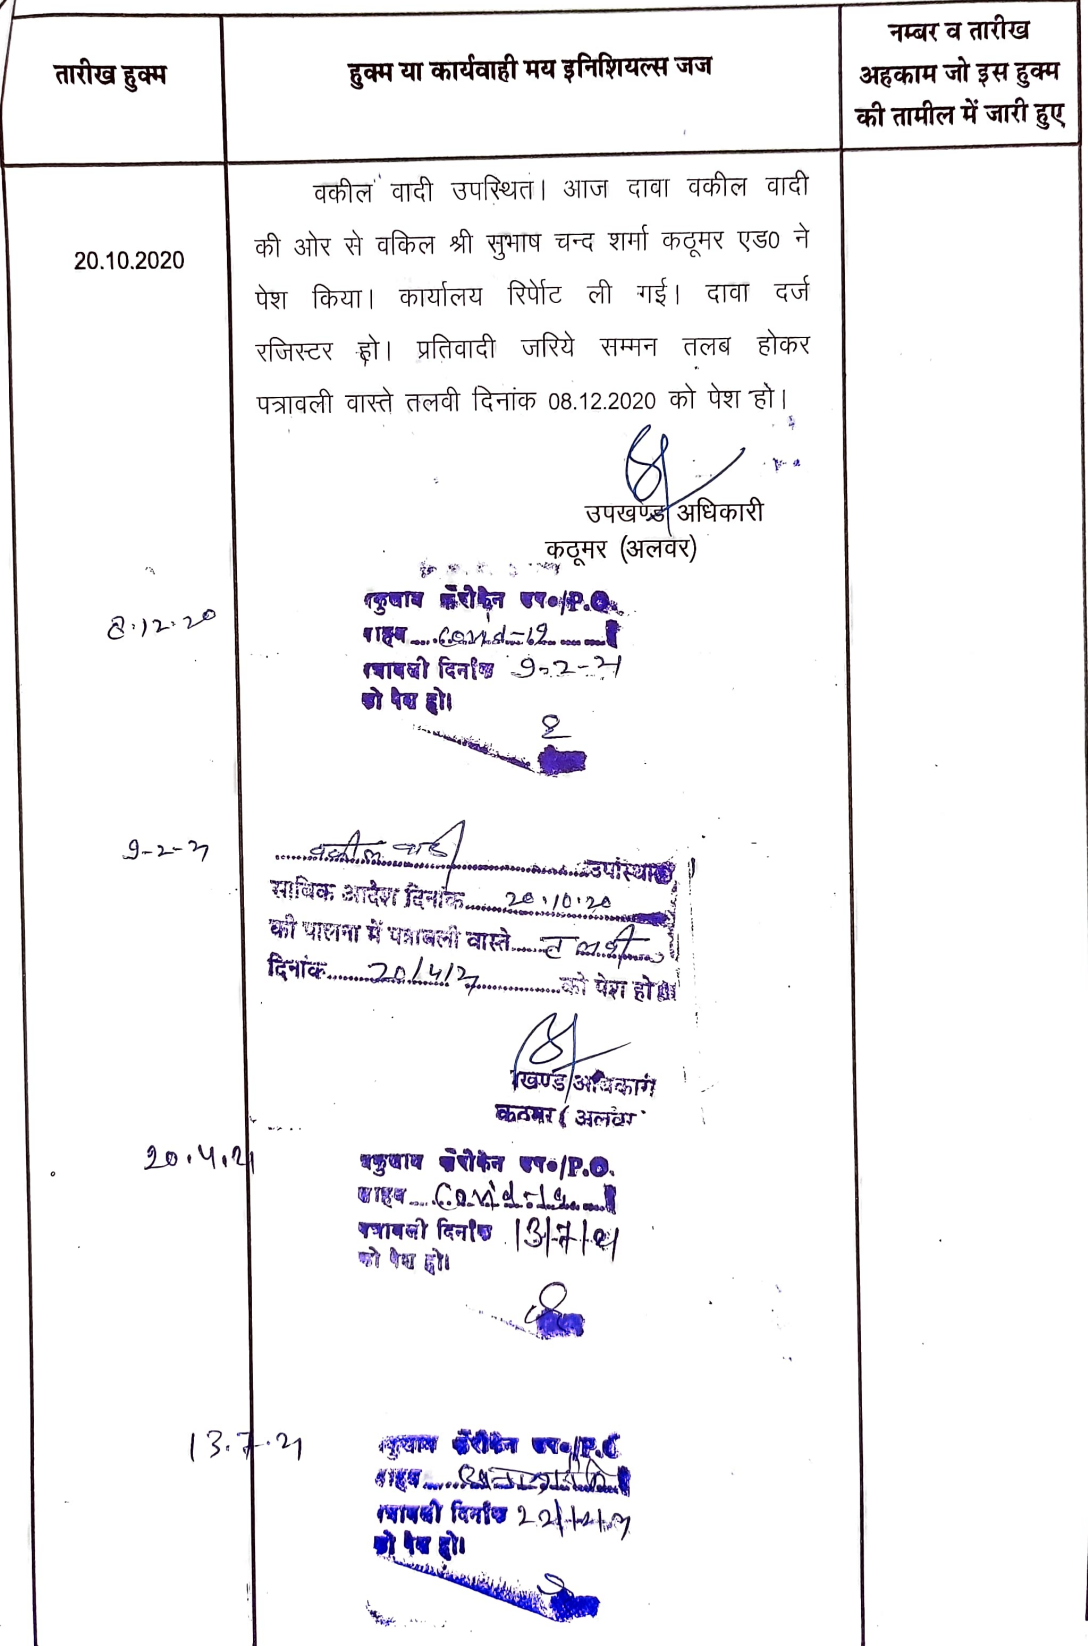 तारीख हुक्म
हुक्म या कार्यवाही मय इनिशियल्स जज
नम्बर व तारीख
अहकाम जो इस हुक्म
की तामील में जारी हुए
20.10.2020
वकील वादी उपस्थित। आज दावा वकील वादी
की ओर से वकिल श्री सुभाष चन्द शर्मा कठूमर एड0 ने
पेश किया। कार्यालय रिर्पोट ली गई। दावा दर्ज
रजिस्टर हो। प्रतिवादी जरिये सम्मन तलब होकर
पत्रावली वास्ते तलवी दिनांक 08.12.2020 को पेश हो।
उपखण्ड अधिकारी
कठूमर (अलवर)
8.12.20
P.O.
साहब .... Covid-19
दिनांक 9-2-21
को पेश हो।
9-2-21
वकील वादी
साबिक आदेश दिनांक 20.10.20
की पालना में पत्राबली वास्ते तलवी
दिनांक 20/4/21 को पेश हो।
खण्ड
कठूमर ( अलवर
20.4.21
P.O.
साहब .... Covid-19
पत्रावली दिनांक 13/7/21
को पेश हो।
13.7.21
दिनांक
को पेश हो।